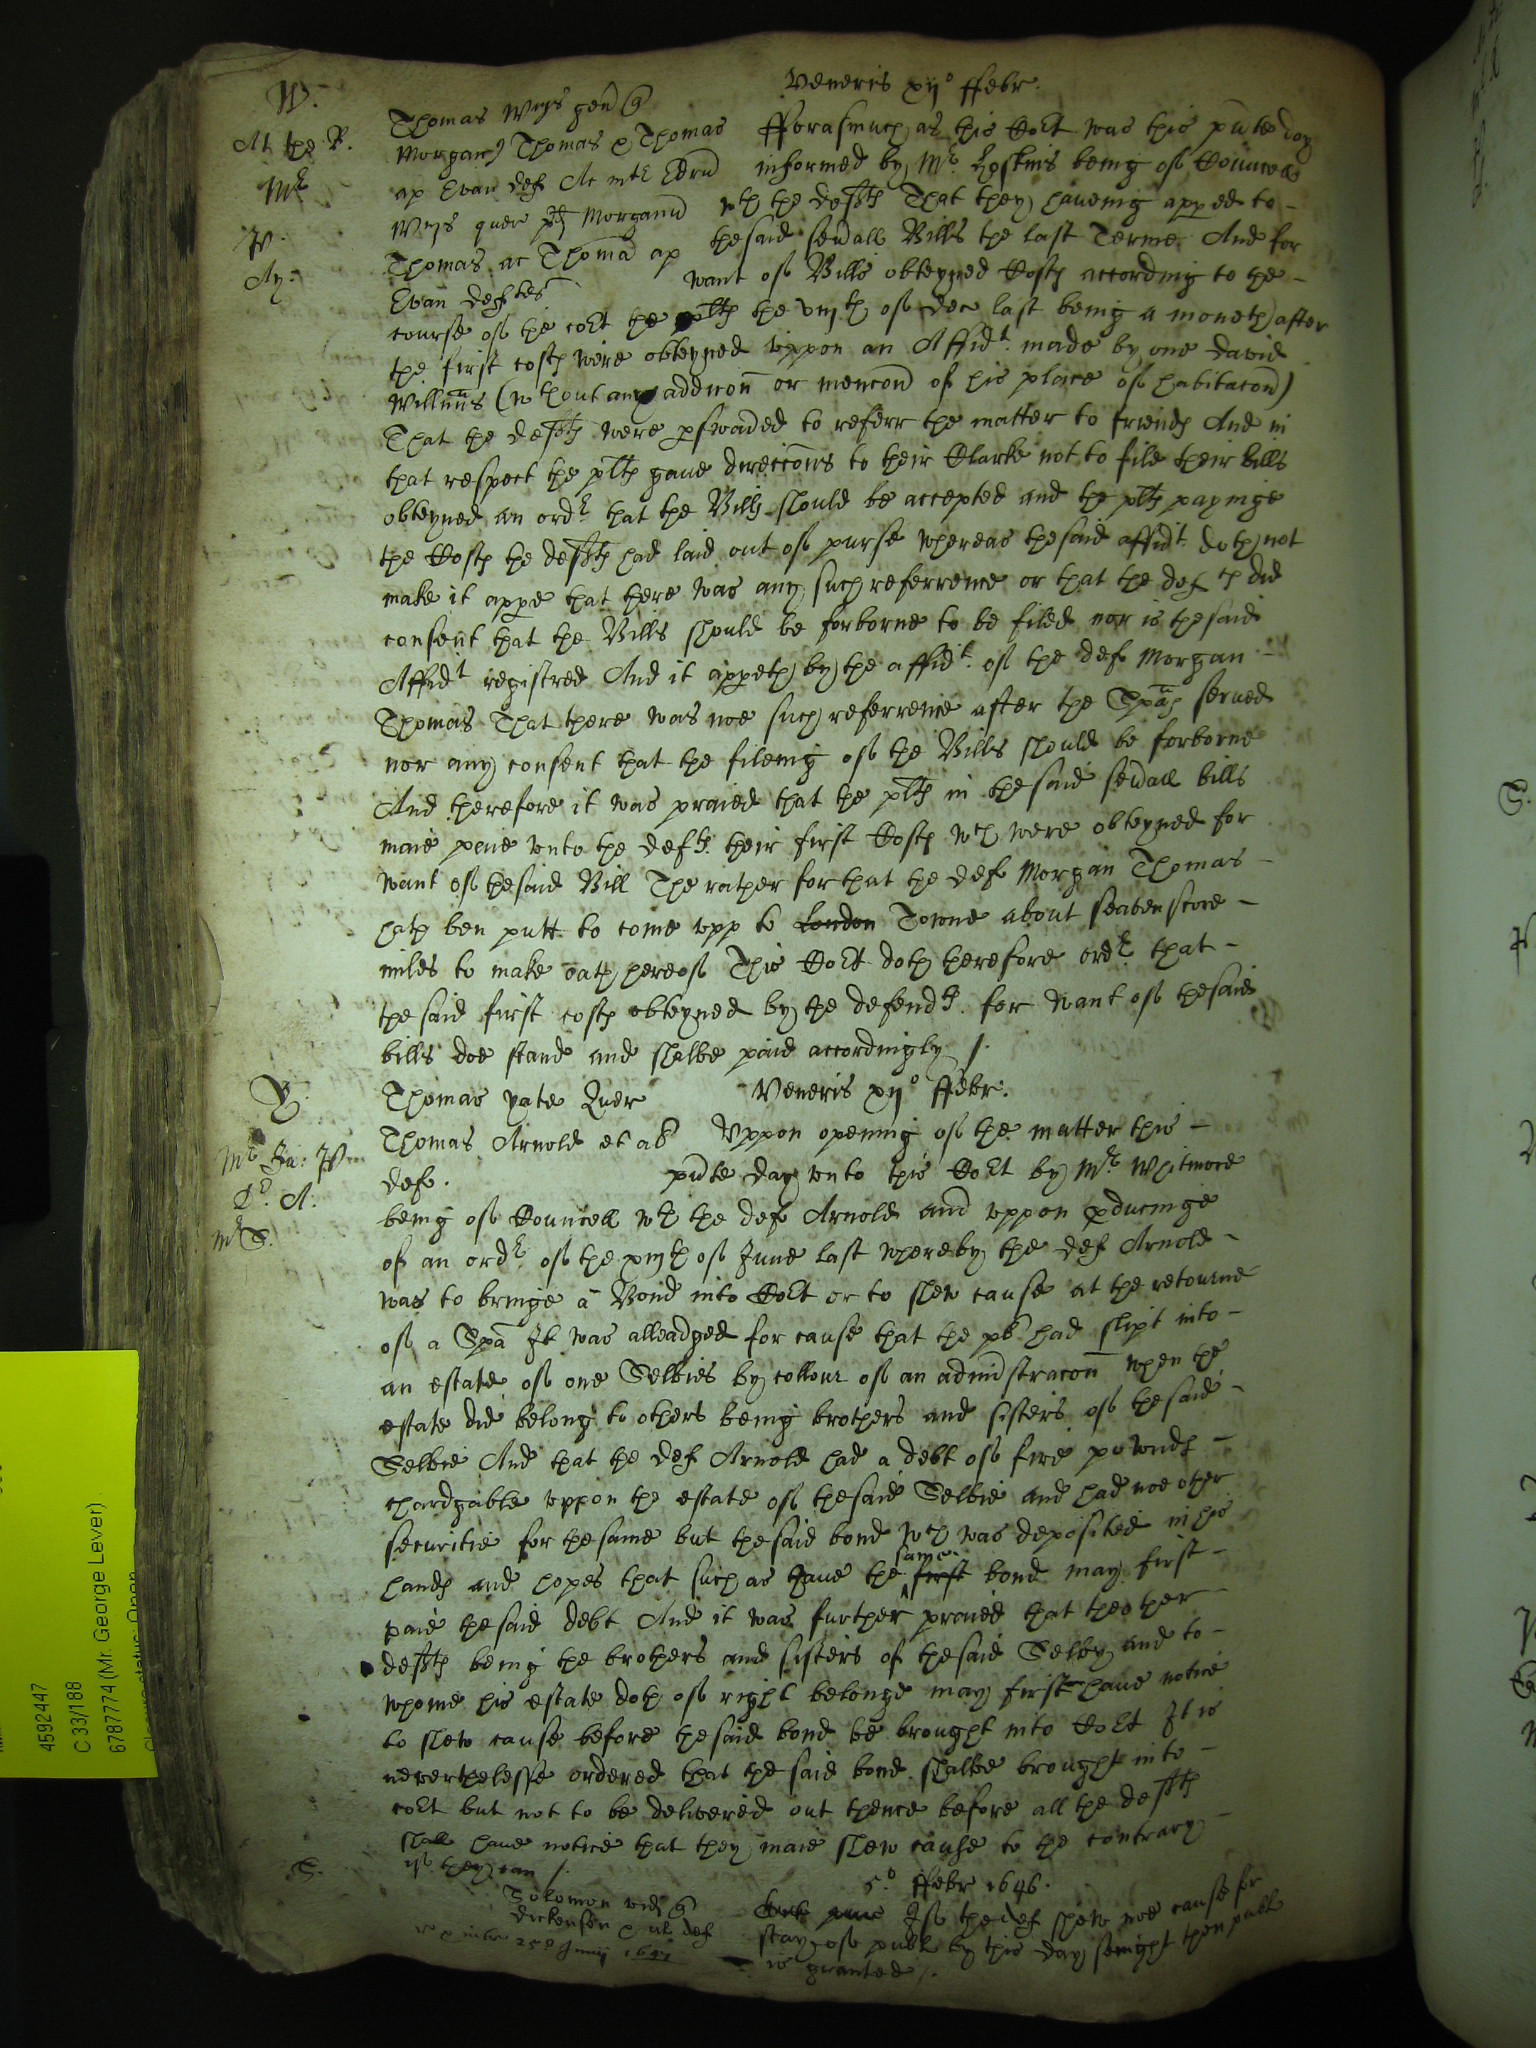 W.
At the R.
Mr
W.
Ay:
Veneris xijo ffebr.
Thomas Wys gen Q
Morgan Thomas & Thomas
ap Evan def Ac int Edrū
Wys quer Morganū
Thomas ac Thomā ap
Evan deftes
fforasmuch as this Cort was this pñte day
informed by Mr Hoskins being of Councell
wth the defts That they haueing apped to
the said seūall Bills the last Terme And for
want of Bills obteyned Costs according to the
course of the cort the plts the viijth of Dec last being a moneth after
the first costs were obteyned vppon an Affidt. made by one David
Willms (wthout any addicon or mencon of his place of habitacon)
That the defts were pswaded to referr the matter to frends And in
that respect the plts gaue direccons to their Clarke not to file their bills
obteyned an ordr. that the Bills should be accepted and the plts payinge
the Costs the defts had laid out of purse whereas the said affidt. doth not
make it appe that there was any such referrence or that the defts did
consent that the Bills should be forborne to be filed nor is the said
Affidt registred And it appeth by the affidt. of the def Morgan
Thomas That there was noe such referrence after the Spa serued
nor any consent that the fileing of the Bills should be forborne
And therefore it was praied that the plts in the said seūall bills
maie paie vnto the defts. their first Costs wch were obteyned for
want of the said Bill The rather for that the def Morgan Thomas
hath ben putt to come vpp to London Towne about seaven score
miles to make oath hereof This Cort doth therefore ordr. that
the said first costs obteyned by the defendts. for want of the said
bills doe stand and shalbe paid accordingly /.
Y.
Mr Ja: W
A.
Mr S.
Thomas yate Quer
Thomas Arnold et al
def.
Veneris xijo ffebr.
Vppon opening of the matter this
pñte day vnto this Cort by Mr Whitmore
being of Councell wth the def Arnold and vppon pduceinge
of an ordr. of the xiijth of June last whereby the def Arnold
was to bringe a Bond into Cort or to shew cause at the retourne
of a Spa It was alleadged for cause that the pl had slipt into
an estate of one Selbies by collour of an adminstracon when the
estate did belong to others being brothers and sisters of the said
Selbie And that the def Arnold had a debt of five pownds
chardgable vppon the estate of the said Selbie and had noe other
securitie for the same but the said bond wch was deposited in his
hands and hopes that such as haue the first same bond may first
paie the said debt And it was further praied that the other
defts being the brothers and sisters of the said Selby and to
whome his estate doth of right belonge may first haue notice
to shew cause before the said bond be brought into Cort It is
neverthelesse ordered that the said bond shalbe brought into
cort but not to be delivered out thence before all the defts
shall haue notice that they maie shew cause to the contrary
if they can /.
S.
5o. ffebr 1646.
Solomon vid Q
Dickenson & al def
If the def shew noe cause for
stay of publ by this day senight then publ
is granted /.
Junij 1647
4592447
C 33/188
6787774 (Mr. George Lever)